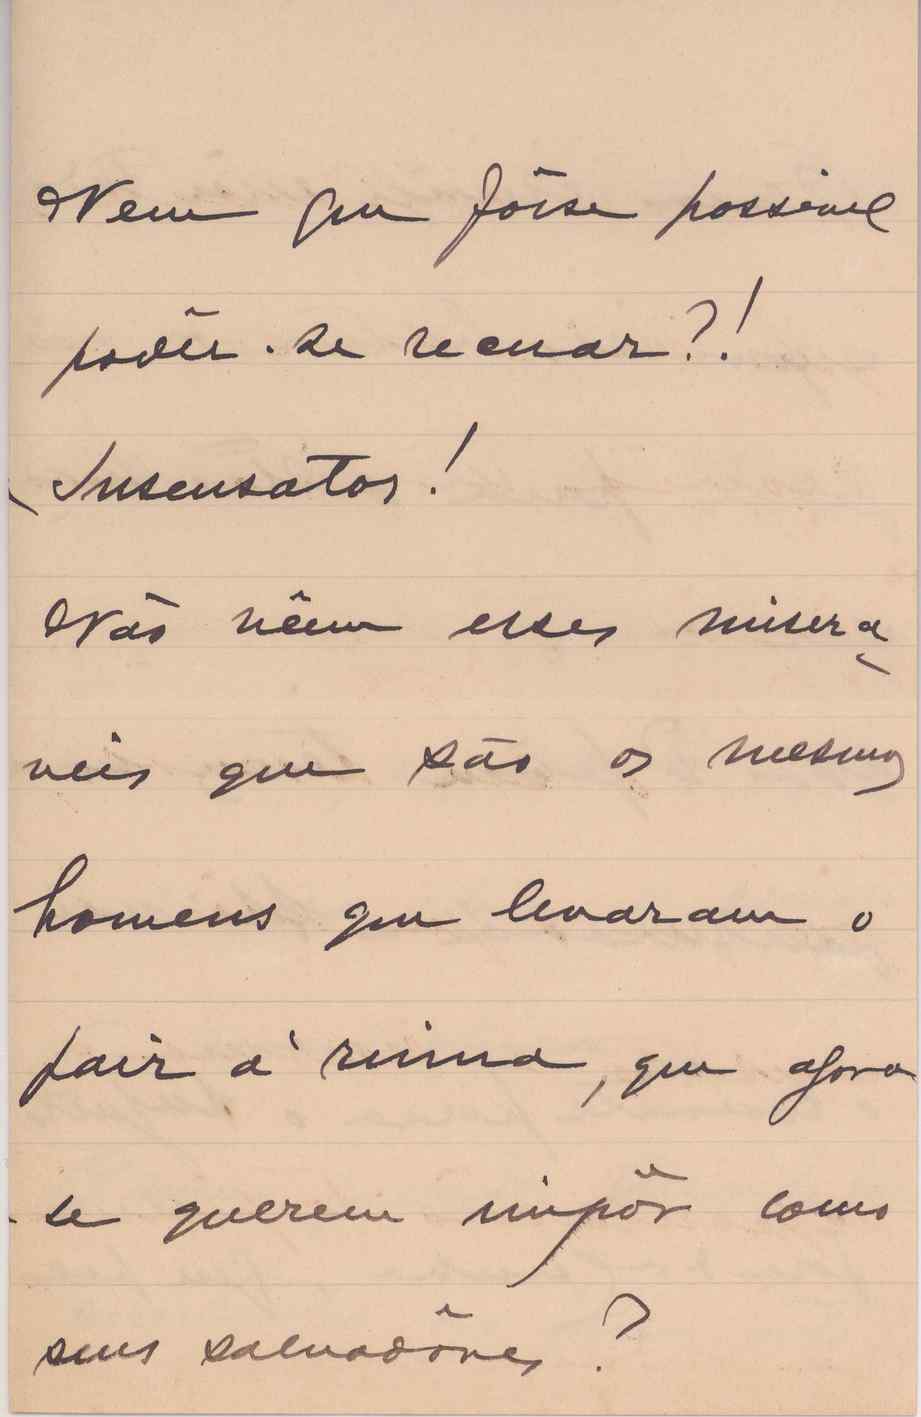 Nem que fôsse possivel
podêr-se recuar?!
Insensatos!
Não vêem esses misera
veis que são os mesmos
homens que levaram o
paiz á ruina, que agora
se querem impôr como
seus salvadôres?